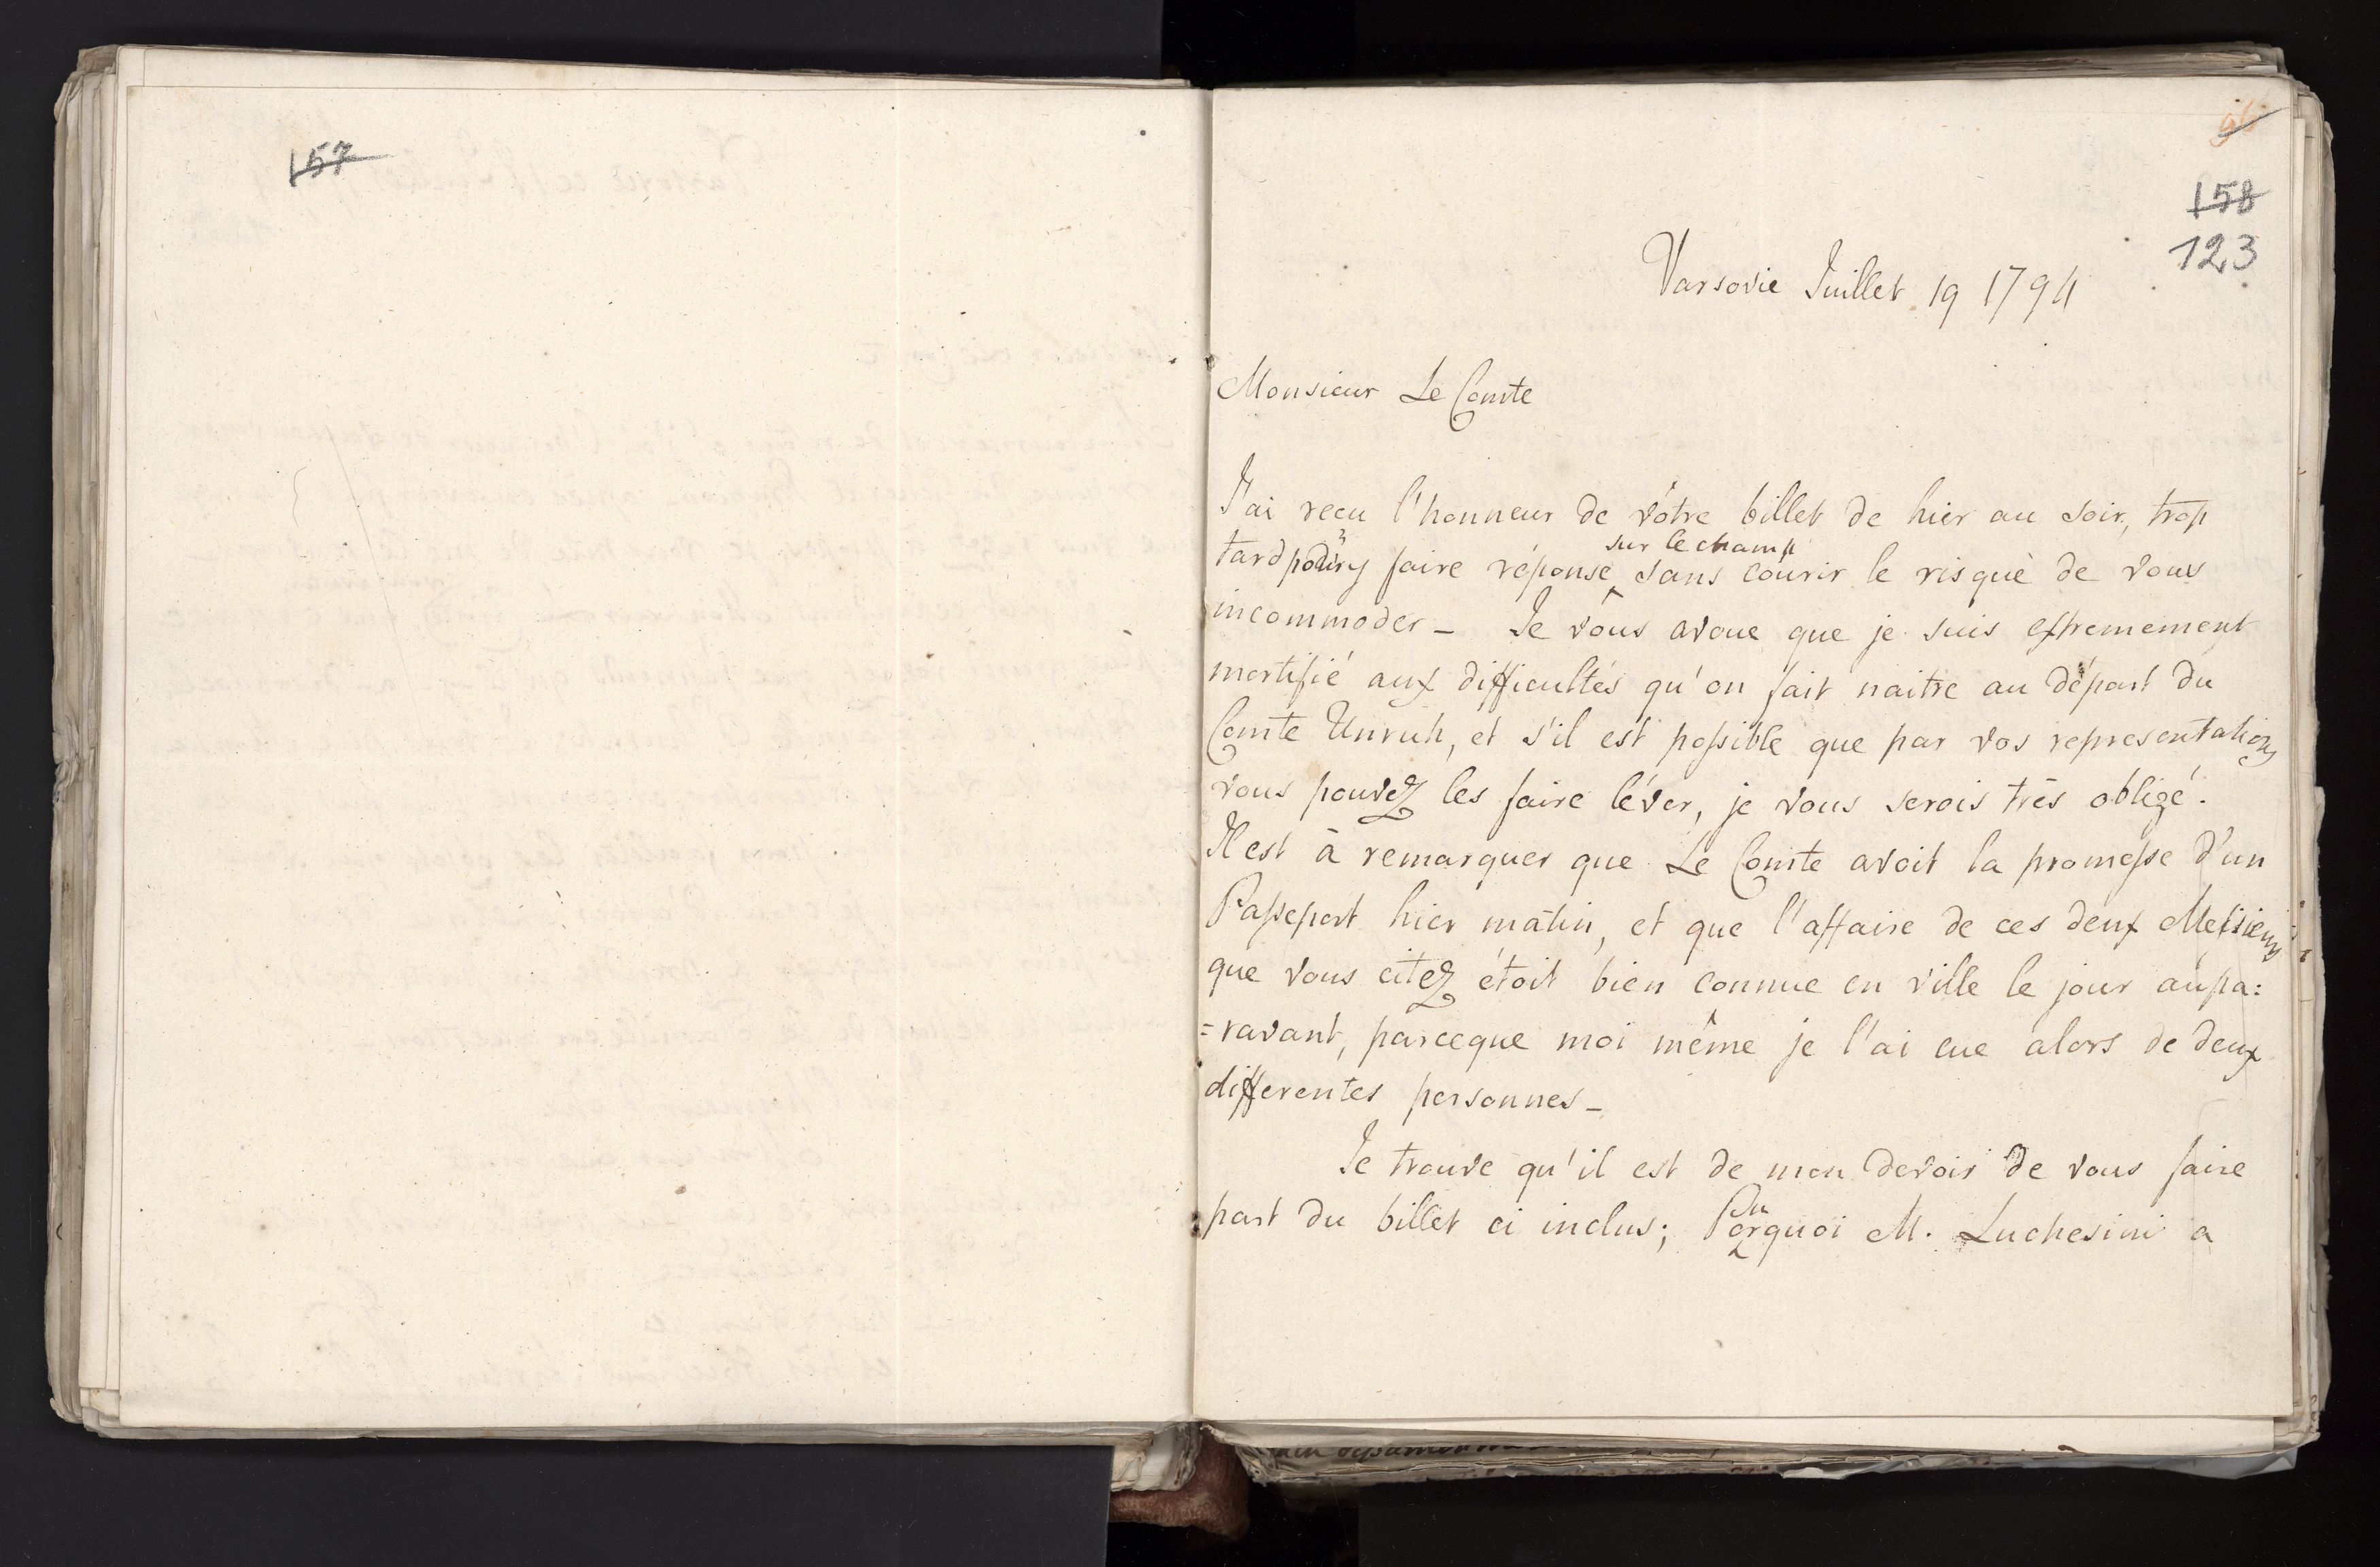 157
158
123
Varsovie Juillet 19 1794
Monsieur Le Comte
J'ai recu l'honneur de vôtre billet de hier au soir, trop
tard pour y faire réponse sur le champ sans courir le risque de vous
incommoder - Je vous avoue que je suis extremement
mortifié aux difficultés qu'on fait naitre au départ du
Comte Unruh, et s'il est possible que par vos representations
vous pouvez les faire léver, je vous serois très obligé.
Il est à remarquer que Le Comte avoit la promesse d'un
Passeport hier matin, et que l'affaire de ces deux Messieurs
que vous citez étoit bien connue en ville le jour aupa:
=ravant, parceque moi même je l'ai eue alors de deux
differentes personnes -
Je trouve qu'il est de mon devoir de vous faire
part du billet ci inclus; Pourquoi M. Luchesini a